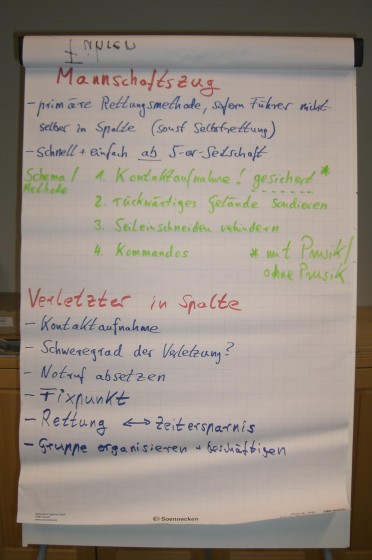 Mannschaftszug
- primäre Rettungsmethode, sofern Führer nicht
selber in Spalte (sonst Selbstrettung)
- schnell + einfach ab 5-er-Seilschaft
Schema/ 1. Kontaktaufnahme! gesichert *
Methode
2. rückwärtiges Gelände sondieren
3. Seileinschneiden verhindern
4. Kommandos * mit Prusik/
ohne Prusik
Verletzter in Spalte
- Kontaktaufnahme
- Schweregrad der Verletzung?
- Notruf absetzen
- Fixpunkt
- Rettung <-> Zeitersparnis
- Gruppe organisieren + beschäftigen
Soennecken